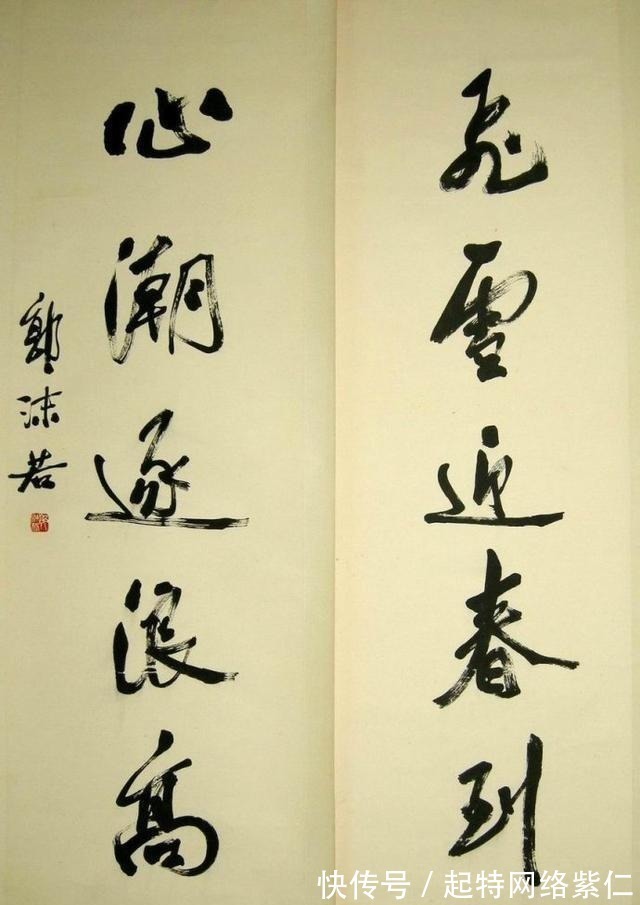 飛雪迎春到
心潮逐浪高
郭沫若
快传号 / 起特网络紫仁